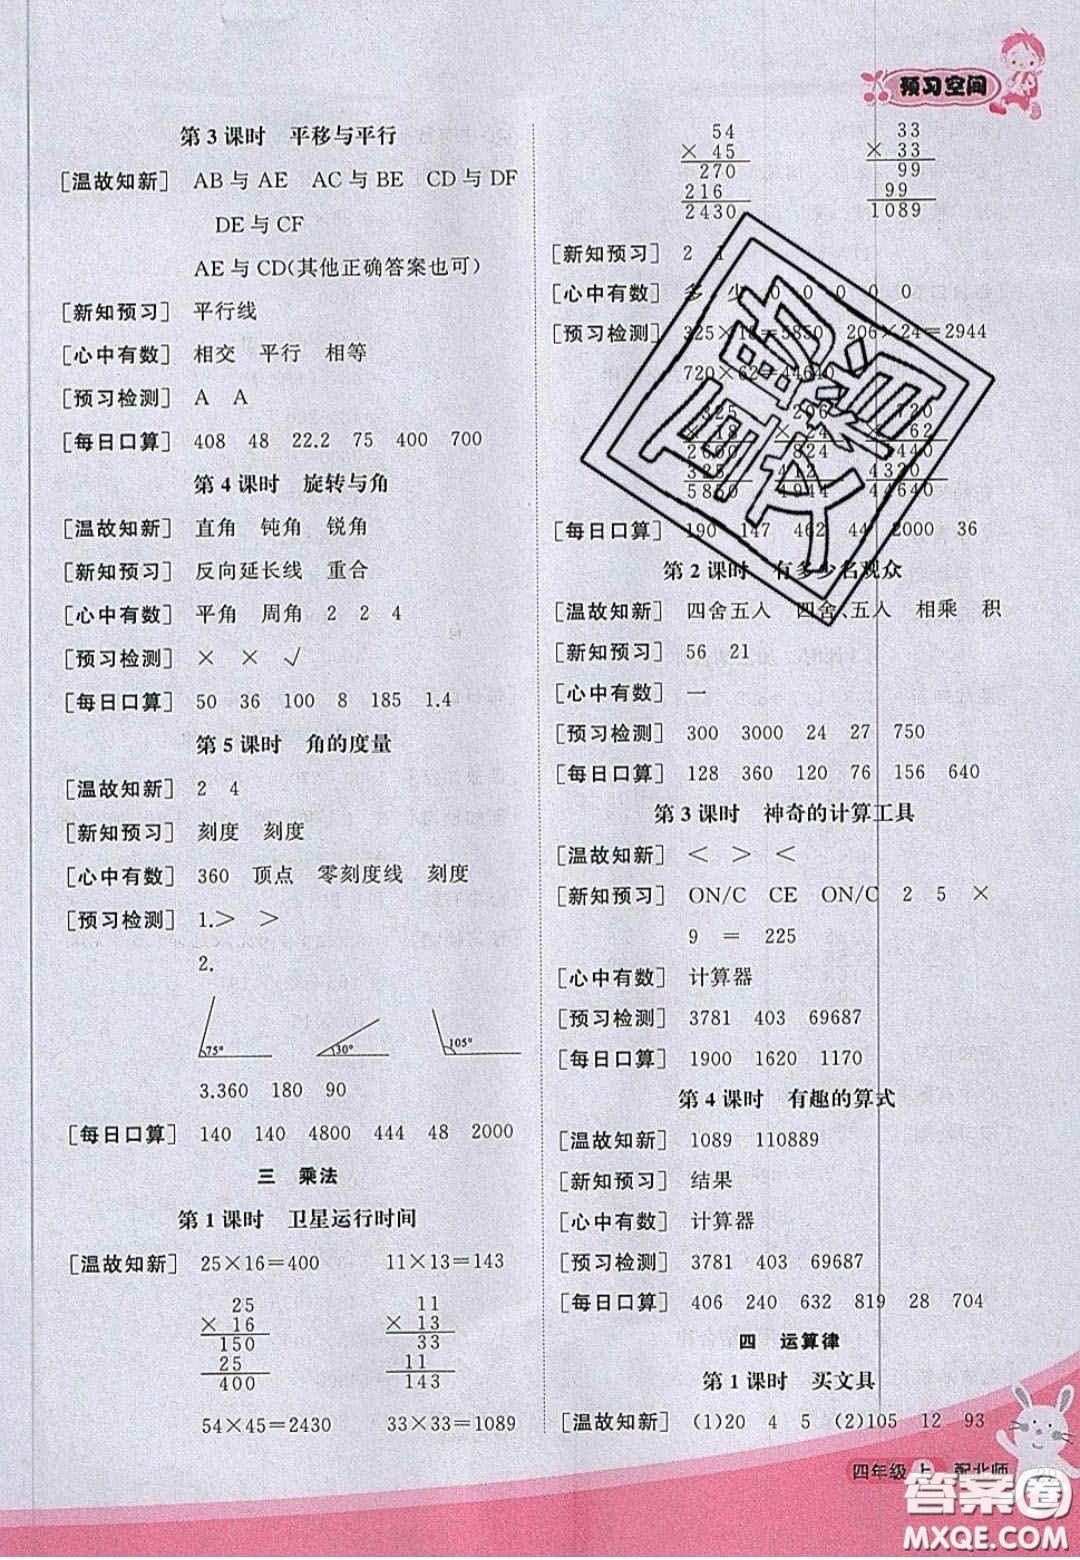 预习空间
第3课时 平移与平行
[温故知新] AB与AE AC与BE CD与DF
DE与CF
AE与CD(其他正确答案也可)
[新知预习] 平行线
[心中有数] 相交 平行 相等
[预习检测] A A
[每日口算] 408 48 22.2 75 400 700
第4课时 旋转与角
[温故知新] 直角 钝角 锐角
[新知预习] 反向延长线 重合
[心中有数] 平角 周角 2 2 4
[预习检测] × × √
[每日口算] 50 36 100 8 185 1.4
第5课时 角的度量
[温故知新] 2 4
[新知预习] 刻度 刻度
[心中有数] 360 顶点 零刻度线 刻度
[预习检测] 1.> >
2.
75° 30° 105°
3.360 180 90
[每日口算] 140 140 4800 444 48 2000
三 乘法
第1课时 卫星运行时间
[温故知新] 25×16=400 11×13=143
25 11
× 16 × 13
150 33
25 11
400 143
54×45=2430 33×33=1089
54 33
× 45 × 33
270 99
216 99
2430 1089
[新知预习] 2 1
[心中有数] 多 少 0 0 0 0 0
[预习检测] 325×18=5850 206×24=2944
720×62=44640
325 206 720
× 18 × 24 × 62
2600 824 1440
325 412 4320
5850 4944 44640
[每日口算] 190 147 462 44 2000 36
第2课时 有多少名观众
[温故知新] 四舍五入 四舍、五入 相乘 积
[新知预习] 56 21
[心中有数] 一
[预习检测] 300 3000 24 27 750
[每日口算] 128 360 120 76 156 640
第3课时 神奇的计算工具
[温故知新] < > <
[新知预习] ON/C CE ON/C 2 5 ×
9 = 225
[心中有数] 计算器
[预习检测] 3781 403 69687
[每日口算] 1900 1620 1170
第4课时 有趣的算式
[温故知新] 1089 110889
[新知预习] 结果
[心中有数] 计算器
[预习检测] 3781 403 69687
[每日口算] 406 240 632 819 28 704
四 运算律
第1课时 买文具
[温故知新] (1)20 4 5 (2)105 12 93
四年级 上 配北师
答案圈
MXQE.COM